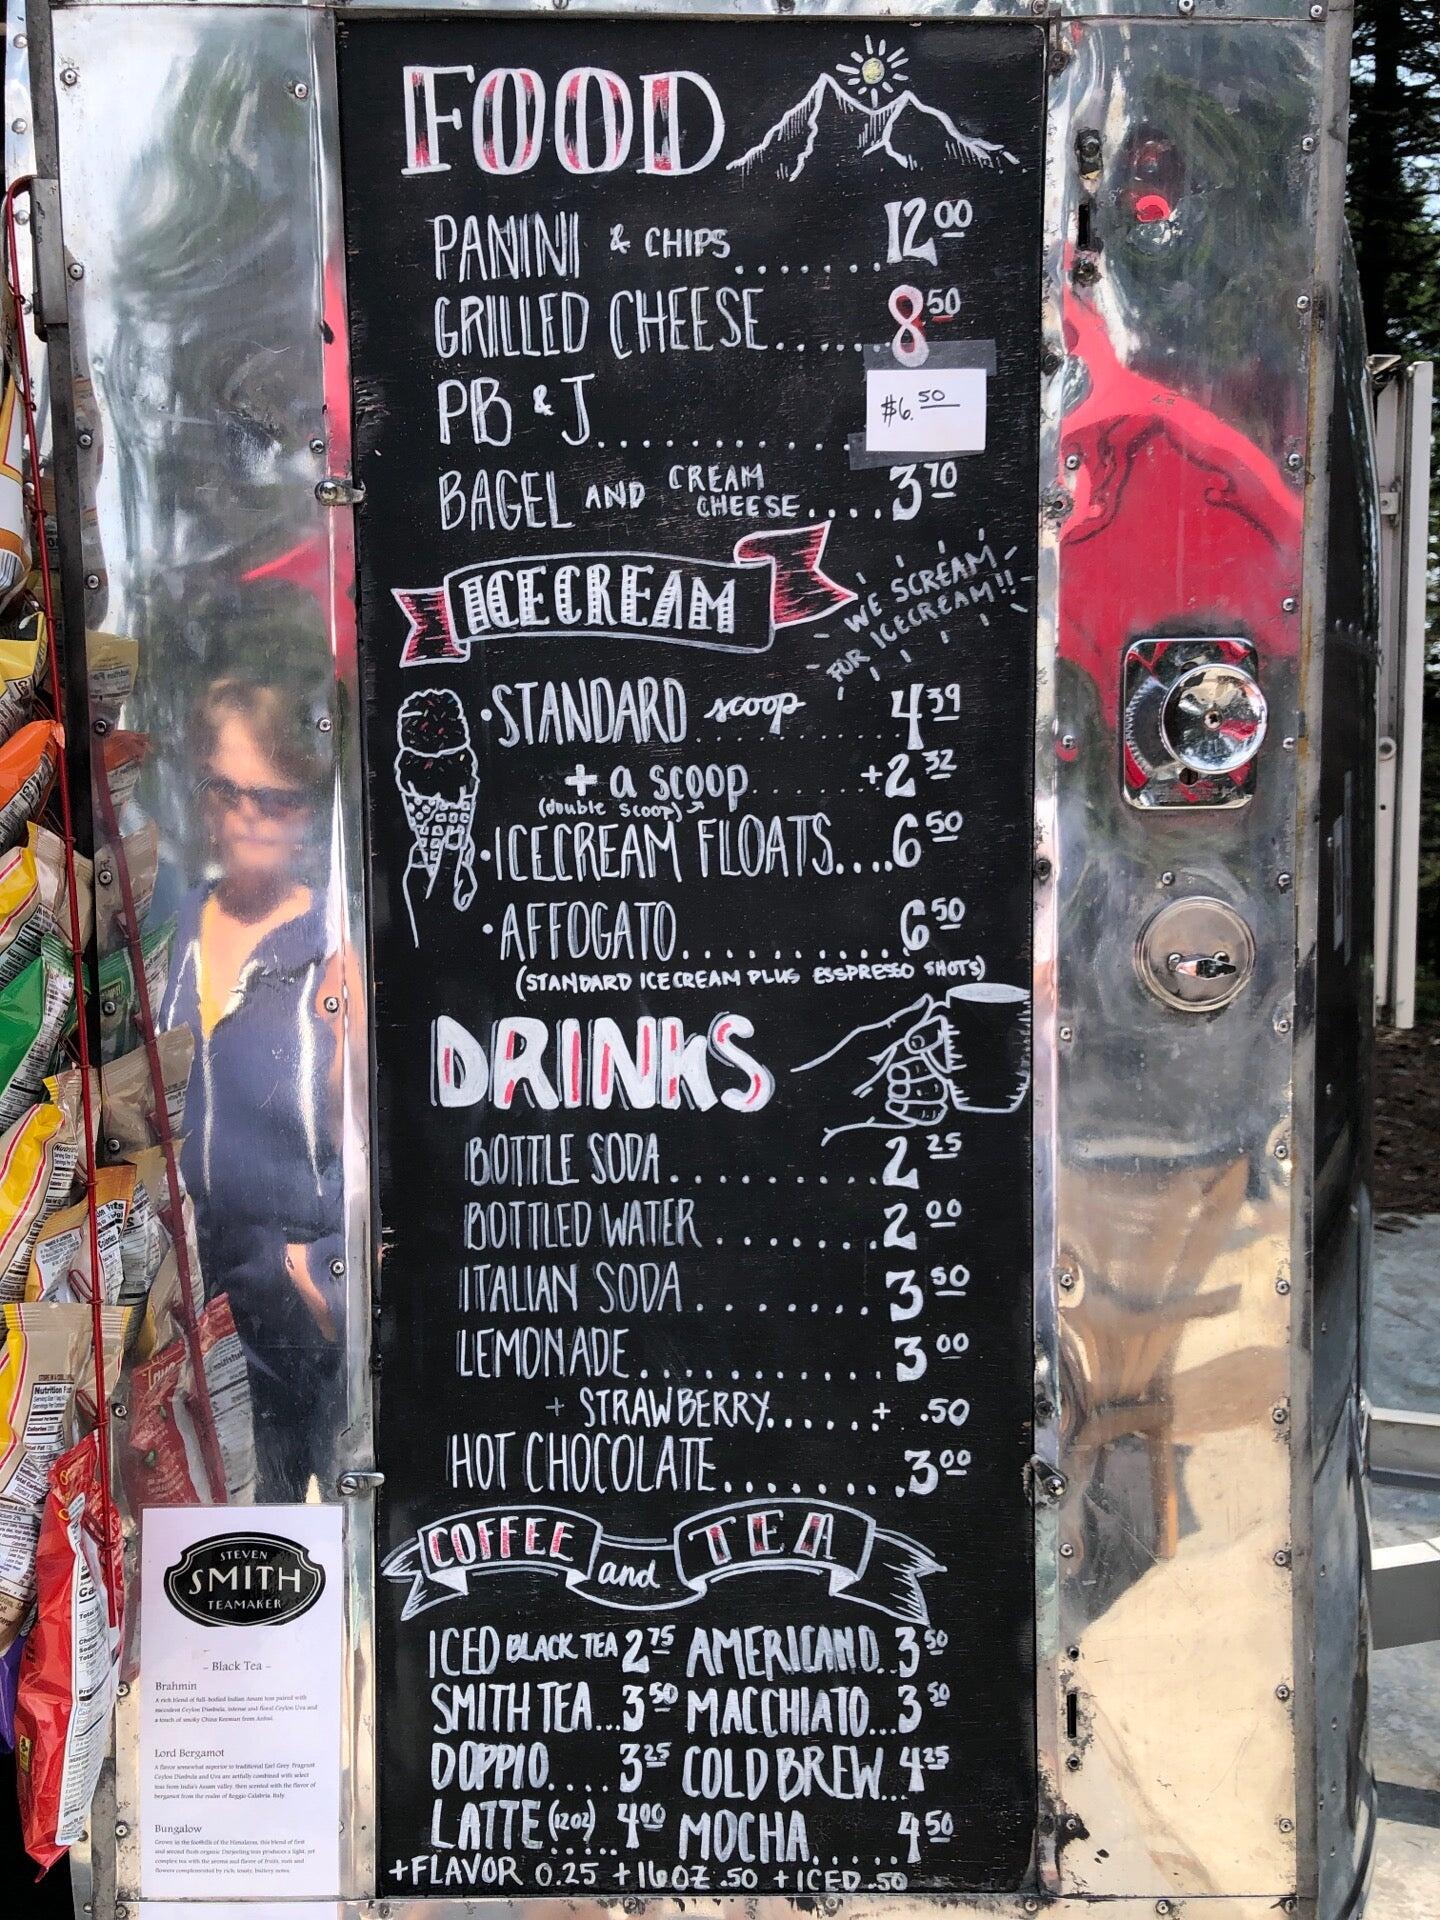 FOOD
PANINI & CHIPS ....... 12 00
GRILLED CHEESE...... 8 50
PB & J............ $6. 50
BAGEL AND CREAM CHEESE.... 3 70
ICECREAM
WE SCREAM
FOR ICECREAM!!
• STANDARD scoop ............ 4 39
+ a scoop........ +2 32
(double scoop)
• ICECREAM FLOATS.... 6 50
• AFFOGATO........... 6 50
(STANDARD ICECREAM PLUS ESSPRESSO SHOTS)
DRINKS
BOTTLE SODA ......... 2 25
BOTTLED WATER ....... 2 00
ITALIAN SODA ........ 3 50
LEMONADE ........... 3 00
+ STRAWBERRY..... + .50
HOT CHOCOLATE........ 3 00
COFFEE and TEA
ICED BLACK TEA 2 75 AMERICANO.. 3 50
SMITH TEA... 3 50 MACCHIATO... 3 50
DOPPIO.... 3 25 COLD BREW... 4 25
LATTE (12oz) ..... 4 00 MOCHA..... 4 50
+FLAVOR 0.25 +16OZ .50 +ICED .50
STEVEN
SMITH
TEAMAKER
– Black Tea –
Brahmin
A rich blend of full-bodied Indian Assam teas paired with
succulent Ceylon Dimbula, intense and floral Ceylon Uva and
a touch of smoky China Keemun from Anhui.
Lord Bergamot
A flavor somewhat superior to traditional Earl Grey. Fragrant
Ceylon Dimbula and Uva are artfully combined with select
teas from India's Assam valley, then scented with the flavor of
bergamot from the realm of Reggio Calabria, Italy.
Bungalow
Grown in the foothills of the Himalayas, this blend of first
and second flush organic Darjeeling teas produces a light, yet
complex tea with the aroma and flavor of fruits, nuts and
flowers complemented by rich, toasty, buttery notes.
Nutrition